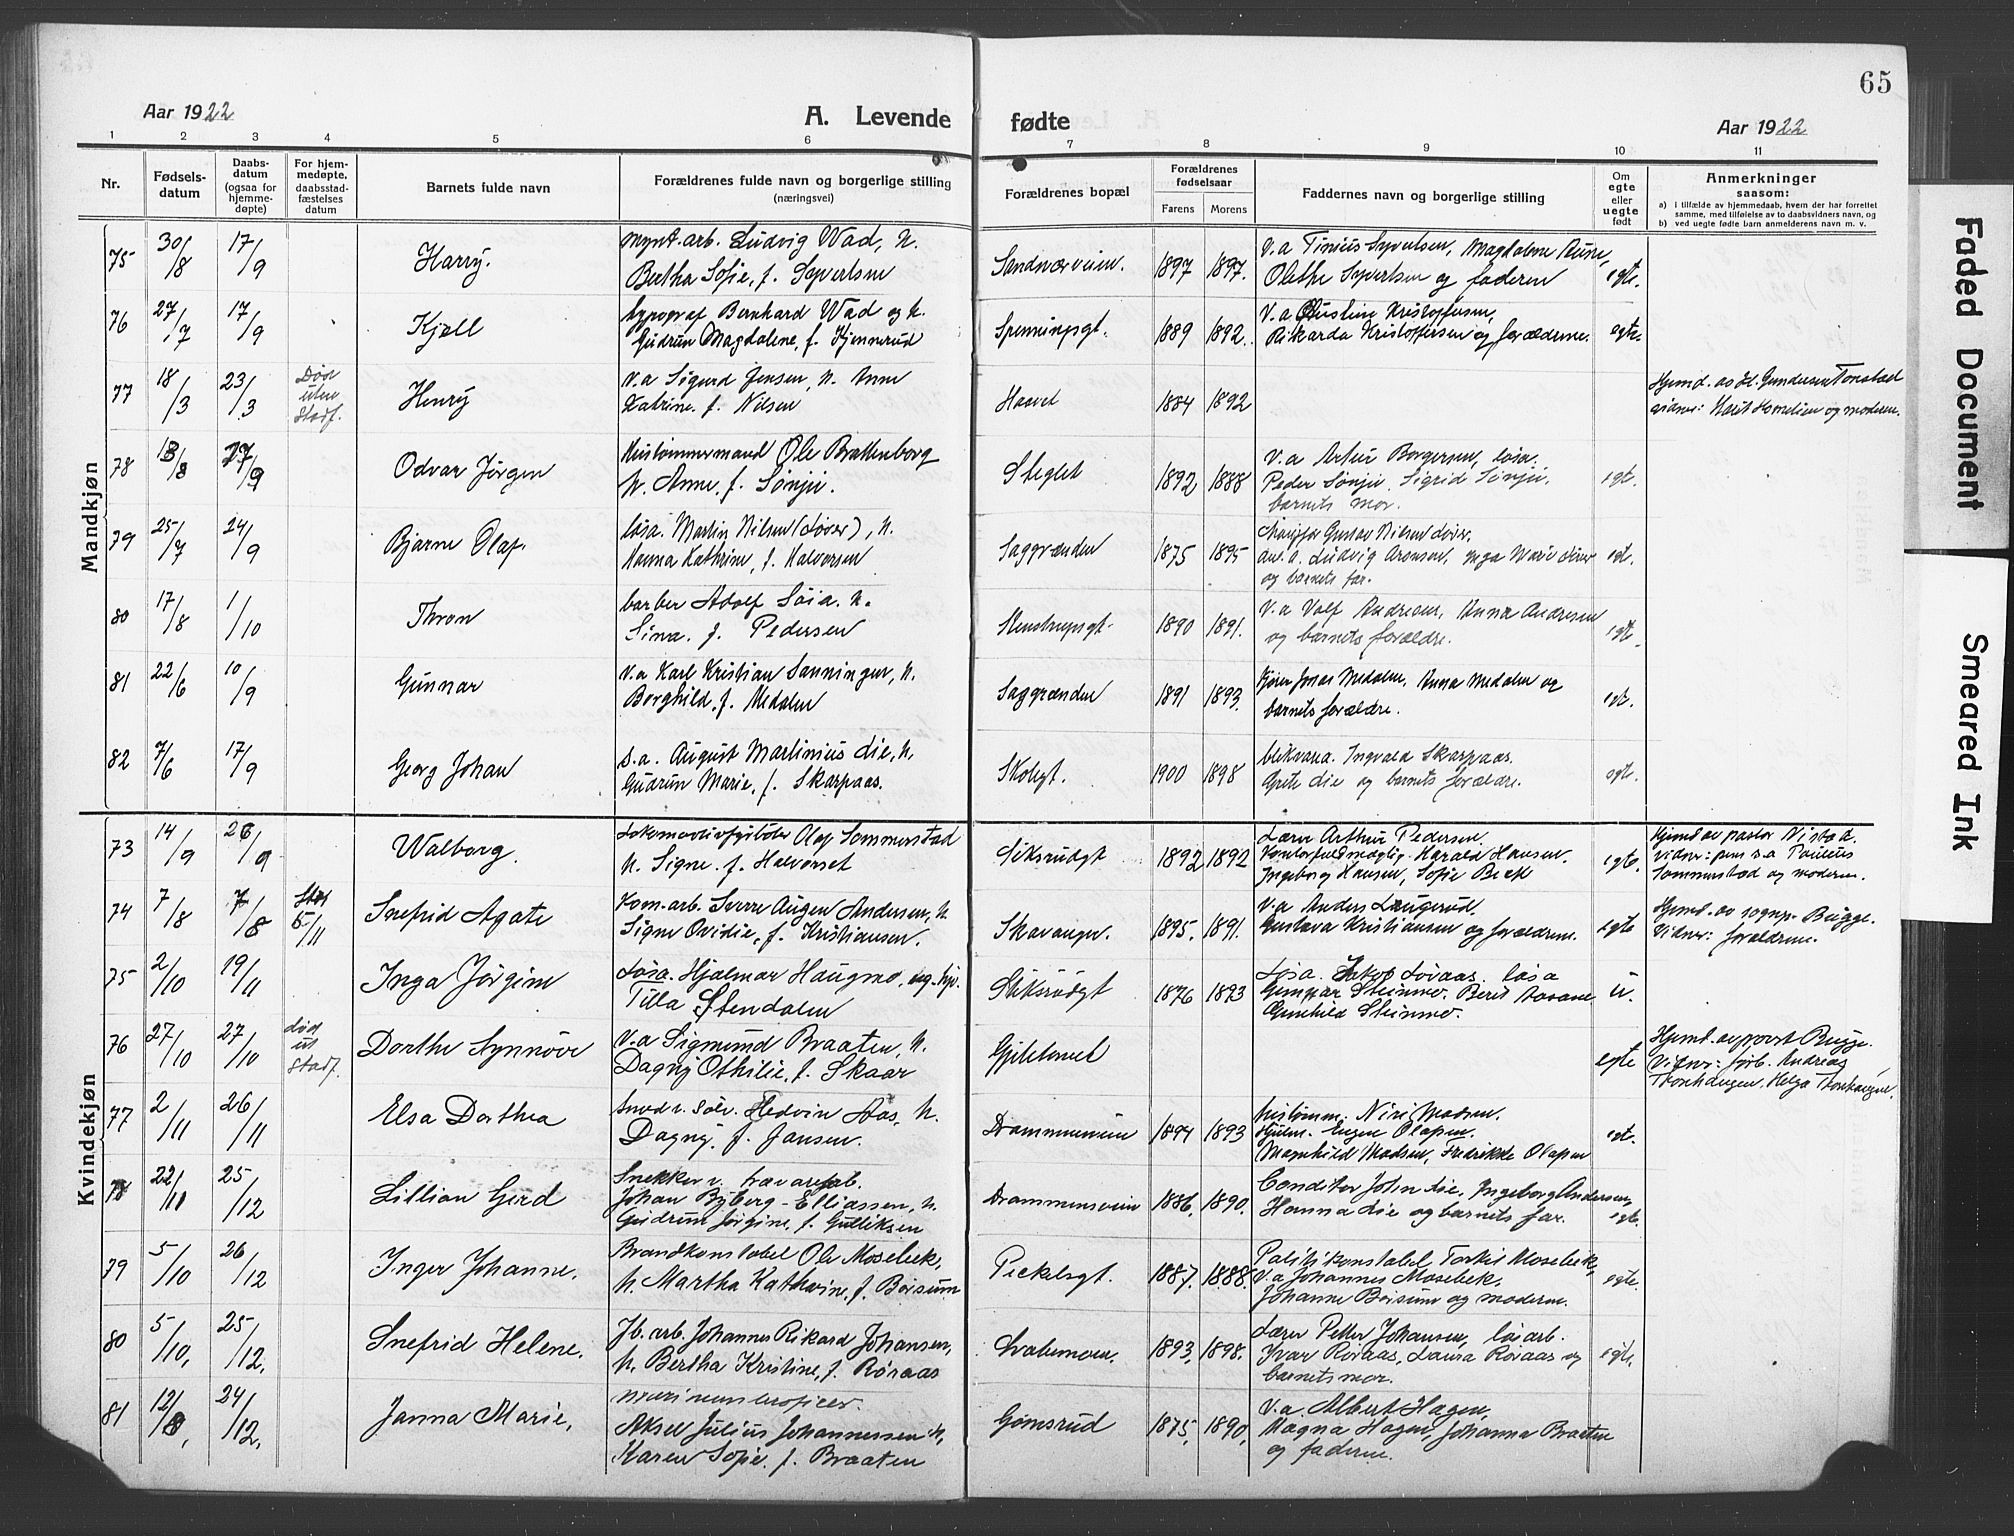 65
Aar 1922
A. Levende fødte
Aar 1922
1 2 3 4 5 6 7 8 9 10 11
Nr.
Fødsels-
datum
Daabs-
datum
(ogsaa for
hjemme-
døpte)
For hjem-
medøpte,
daabsstad-
fæstelses
datum
Barnets fulde navn
Forældrenes fulde navn og borgerlige stilling
(næringsvei)
Forældrenes bopæl
Forældrenes
fødselsaar
Farens Morens
Faddernes navn og borgerlige stilling
Om
egte
eller
uegte
født
Anmerkninger
saasom:
a) i tilfælde av hjemmedaab, hvem der har forrettet
samme, med tilføielse av to daabsvidners navn, og
b) ved uegte fødte barn anmelderens navn m. v.
Mandkjøn
75 30/8 17/9 Harry. mynt.arb. Ludvig Wad, h.
Bertha Sofie, f. Syvertsen
Sandsværveien. 1897 1897.
v.a Tinius Syvertsen, Magdalene Aune,
Olethe Syvertsen og faderen
egte.
76 27/7 17/9 Kjell typograf Bernhard Wad og h.
Gudrun Magdalene, f. Kjennerud
1889 1892.
v.a Kristoffersen,
Rikarda Kristoffersen og forældrene.
egte.
77 18/3 23/3 Død
uten
Stadf.
Henry v.a Sigurd Jensen, h. Anne
Katrine. f. Nilsen
Haavet 1884 1892
Hjemd. av H. Gundersen Tonstad
og moderen.
78 13/8 27/9 Odvar Jørgen Hustømmermand Ole Brattenborg
h. Anne. f. Sønju.
Steglet 1892 1888
v.a Artur Borgersen, løsa.
Peder Sønju, Sigrid Sønju,
barnets mor.
egte.
79 25/7 24/9 Bjarne Olaf. løsa. Martin Nilsen (Lover), h.
Hanna Kathrine, f. Halvorsen
Saggrænden 1875 1895
Gustav Nilsen Lover,
Ludvig Arensen, Inga Marie Lover
og barnets far.
egt.
80 17/8 1/10 Thron barber Adolf Søia. h.
Sina. f. Pedersen
Stenstrupsgt. 1890 1891.
v.a Andresen, Anna Andresen
og barnets forældre.
egte.
81 22/6 10/9 Gunnar v.a Karl Kristian Sanninger, h.
Borghild, f. Medalen
Saggrænden 1891 1893.
Kjører Jonas Medalen, Anna Medalen og
barnets forældre.
egt.
82 7/6 17/9 Georg Johan s.a. August Martinius Lie, h.
Gudrun Marie, f. Skarpaas.
Skolegt. 1900 1898
Ingvald Skarpaas.
Grete Lie og barnets forældre.
egte.
Kvindekjøn
73 14/9 26/9 Walborg. Lokomotivfyrbøter Olaf Sommerstad
h. Signe. f. Halvorset
Stiksrudgt 1892 1892
Lærer Arthur Pedersen.
Kontorfuldmægtig Harald Hansen.
Ingeborg Hansen, Sofie Beck
egte.
Hjemd av pastor Nistad.
vidner: Paulius
Sommerstad og moderen.
74 7/8 7/8 Stad 5/11 Snefrid Agate Kom.arb. Sverre Augen Andersen, h.
Signe Ovidie, f. Kristiansen.
Skavanger. 1895. 1891.
v.a Anders Laugerud,
Gustava Kristiansen og forældrene.
egte
Hjemd. av sognep. Bugge.
Vidner: forældrene.
75 2/10 19/11 Inga Jørgine Løsa. Hjalmar Haugmo, ug. pi.
Tilla Stendalen
Stiksrudgt 1876 1893
Løsa. Jakob Løvaas, løsa
Gunnar Steinmo. Berit Aasane
Gunhild Steinmo.
u.
76 27/10 27/10 død
ut
Stadf.
Dorthe Synnøve v.a Sigmund Braaten, h.
Dagny Othilie, f. Skaar
Gjeltetunet
egte
Hjemd. av provst Bugge.
Vidner: Andreas
Tronhaugen, Helga Tronhaugen.
77 2/11 26/11 Elsa Dorthea Smed v. Sølv. Hedvin Aas, h.
Dagny, f. Jansen.
Drammenveien 1894 1893
hustømm. Nisi Madsen.
Hjulm. Eugen Olafsen.
Magnhild Madsen, Fredrikke Olafsen
egt.
78 22/11 25/12 Lillian Gerd Snekker v. trævarefab.
Johan Byberg-Elliassen, h.
Gudrun Jørgine, f. Gulliksen
Drammensveien 1886. 1890.
Conditor John Lie, Ingeborg Andersen,
Hanna Lie og barnets far.
egte.
79 5/10 26/12 Inger Johanne. Brandkonstabel Ole Mosebæk,
h. Martha Kathrine, f. Børsum
Pickelsgt. 1887. 1888.
Politikonstabel Torkil Mosebek,
v.a Johannes Mosebek,
Johanne Børsum og moderen.
egte.
80 5/10. 25/12. Snefrid Helene. Jb. arb. Johannes Rikard Johansen,
h. Bertha Kristine, f. Røraas
1893, 1898.
Lærer Petter Johansen, løsarb.
Ivar Røraas, Laura Røraas og
barnets mor.
egte.
81 12/8, 24/12. Janna Marie, marineunderofficer
Aksel Julius Johannessen h,
Karen Sofie. f. Braaten
Gomsrud 1875, 1890,
v.a. Albert Hagen,
Magna Hagen, Johanna Braaten
og faderen.
Faded Document
Smeared Ink